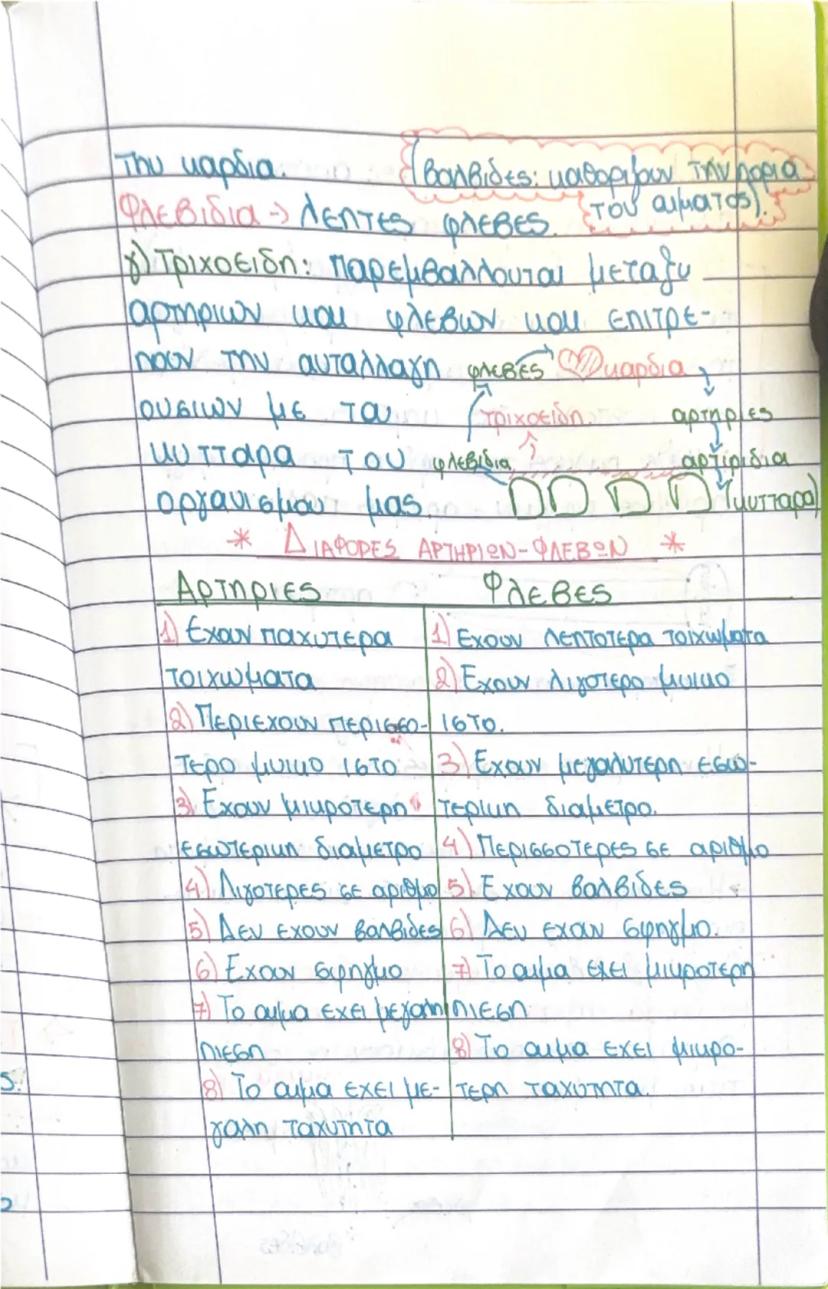 την καρδια. (βαλβιδες: καθοριζουν την πορια
Φλεβιδια → λεπτες φλεβες. του αιματος).
γ) Τριχοειδη: παρεμβαλλονται μεταξυ
αρτηριων και φλεβων και επιτρε-
πουν την ανταλλαγη φλεβες καρδια
ουσιων με τα τριχοειδη αρτηριες
κυτταρα του φλεβιδια αρτιριδια
οργανισμου μας (κυτταρα)
* ΔΙΑΦΟΡΕΣ ΑΡΤΗΡΙΩΝ-ΦΛΕΒΩΝ *
Αρτηριες Φλεβες
1) Εχουν παχυτερα 1) Εχουν λεπτοτερα τοιχωματα
τοιχωματα 2) Εχουν λιγοτερο μυικο
2) Περιεχουν περισσο- ιστο.
τερο μυικο ιστο 3) Εχουν μεγαλυτερη εσω-
3) Εχουν μικροτερη τερικη διαμετρο.
εσωτερικη διαμετρο 4) Περισσοτερες σε αριθμο
4) Λιγοτερες σε αριθμο 5) Εχουν βαλβιδες
5) Δεν εχουν βαλβιδες 6) Δεν εχουν σφηγμο.
6) Εχουν σφηγμο 7) Το αιμα εχει μικροτερη
7) Το αιμα εχει μεγαλη πιεση
πιεση 8) Το αιμα εχει μικρο-
8) Το αιμα εχει με- τερη ταχυτητα.
γαλη ταχυτητα